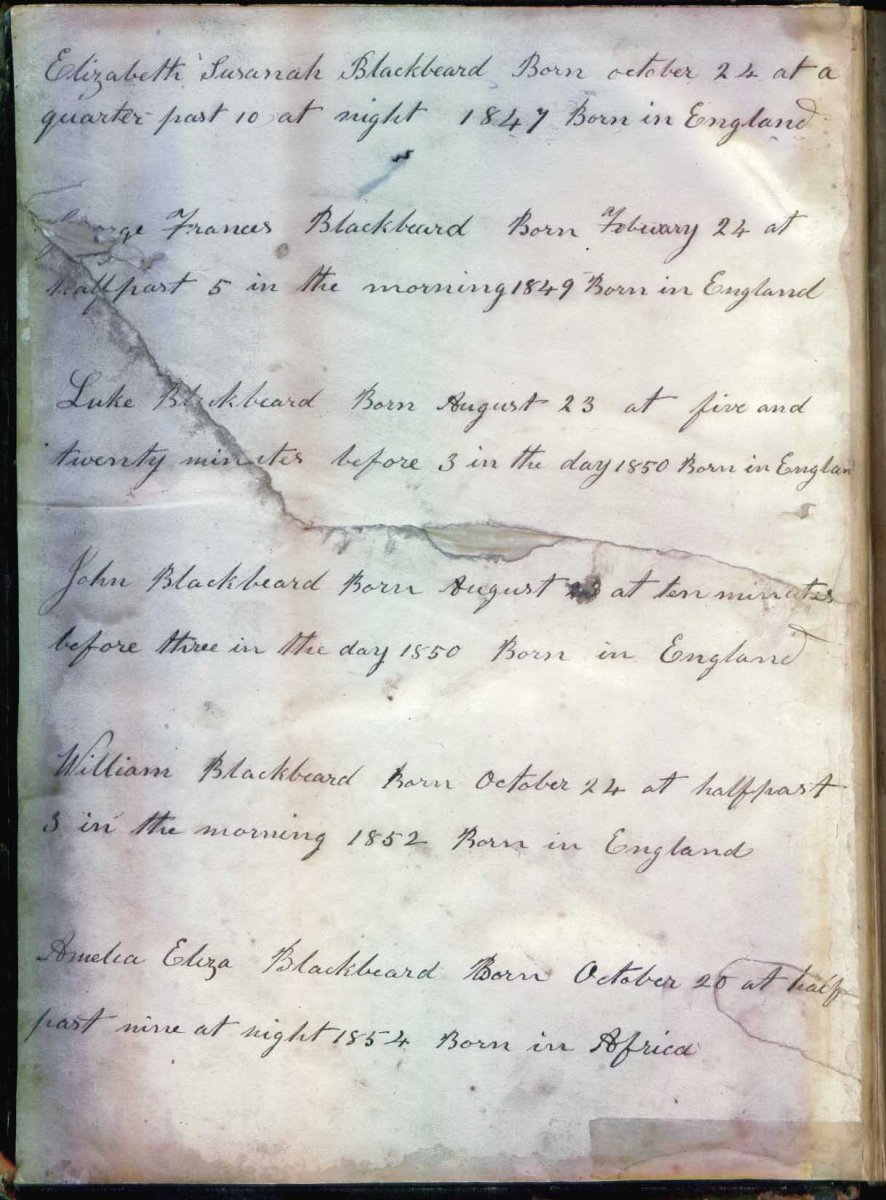 Elizabeth Susanah Blackbeard Born october 24 at a
quarter past 10 at night 1847 Born in England
George Frances Blackbeard Born Febuary 24 at
halfpast 5 in the morning 1849 Born in England
Luke Blackbeard Born August 23 at five and
twenty minutes before 3 in the day 1850 Born in England
John Blackbeard Born August 23 at ten minutes
before three in the day 1850 Born in England
William Blackbeard Born October 24 at halfpast
3 in the morning 1852 Born in England
Amelia Eliza Blackbeard Born October 20 at half
past nine at night 1854 Born in Africa